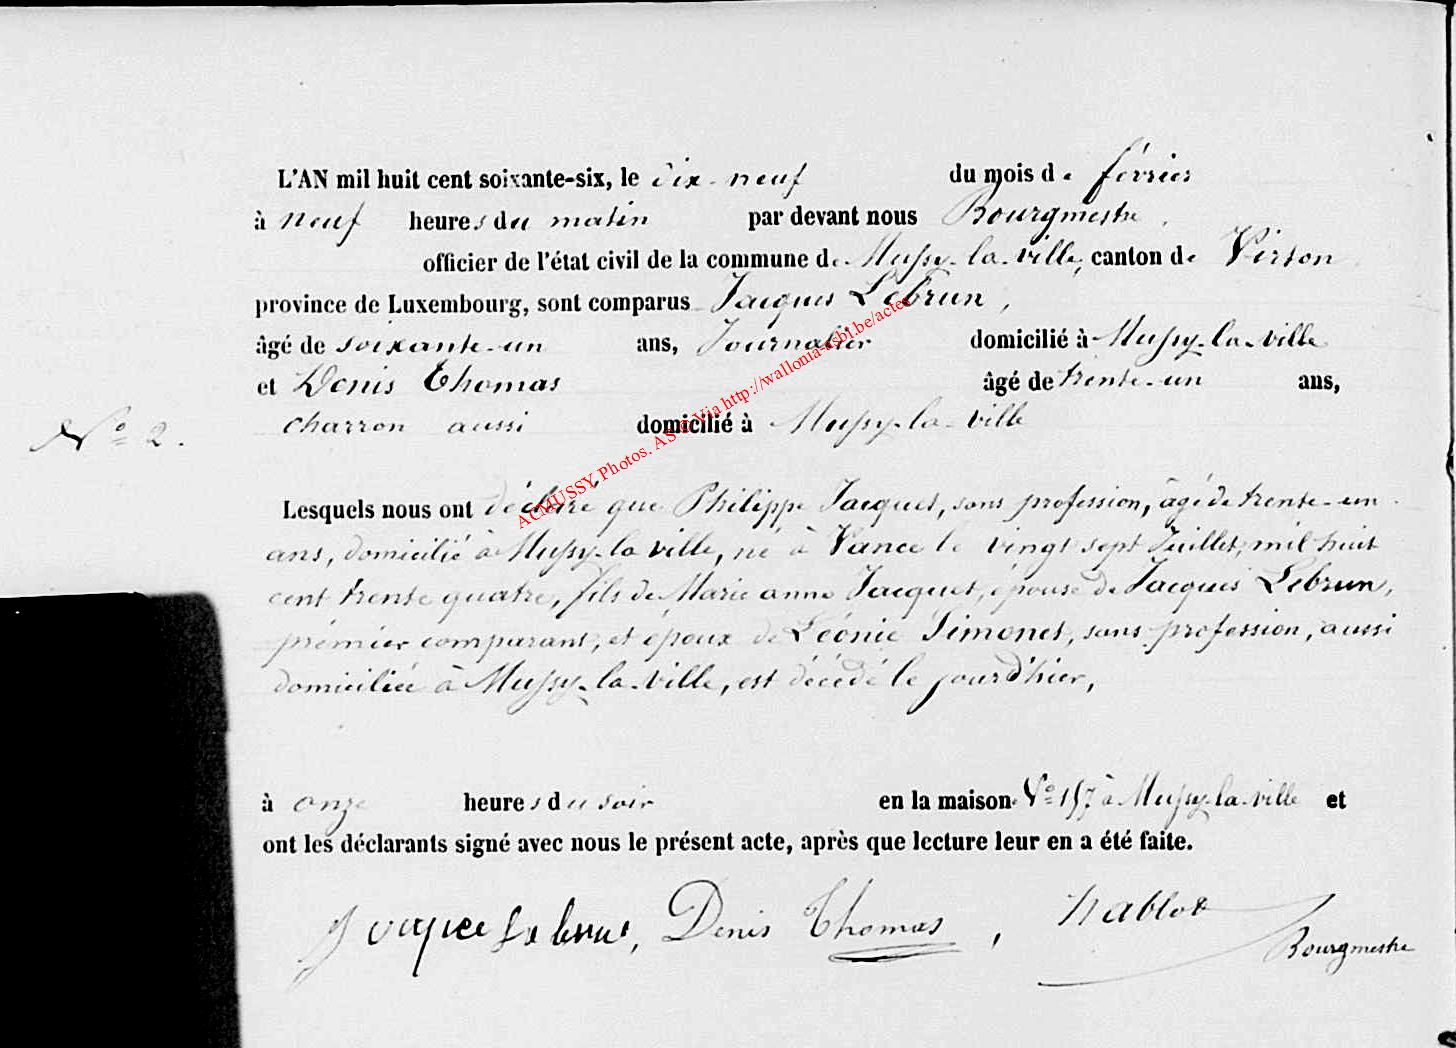 L'AN mil huit cent soixante-six, le dix-neuf du mois de février
à neuf heures du matin par devant nous Bourgmestre,
officier de l'état civil de la commune de Mussy-la-ville, canton de Virton
province de Luxembourg, sont comparus Jacques Lebrun,
âgé de soixante-un ans, Journalier domicilié à Mussy-la-ville
et Denis Thomas âgé de trente-un ans,
N° 2. charron aussi domicilié à Mussy-la-ville
ACMUSSY Photos. ASBL Via http://wallonia-asbl.be/actes
Lesquels nous ont déclaré que Philippe Jacquet, sans profession, âgé de trente-un
ans, domicilié à Mussy-la ville, né à Vance le vingt sept Juillet, mil huit
cent trente quatre, fils de Marie anne Jacquet, épouse de Jacques Lebrun,
prémier comparant, et époux de Léonie Simonet, sans profession, aussi
domiciliée à Mussy-la-ville, est décédé le jourd'hier,
à onze heures du soir en la maison N° 157 à Mussy-la-ville et
ont les déclarants signé avec nous le présent acte, après que lecture leur en a été faite.
Denis Thomas, Nablot
Bourgmestre